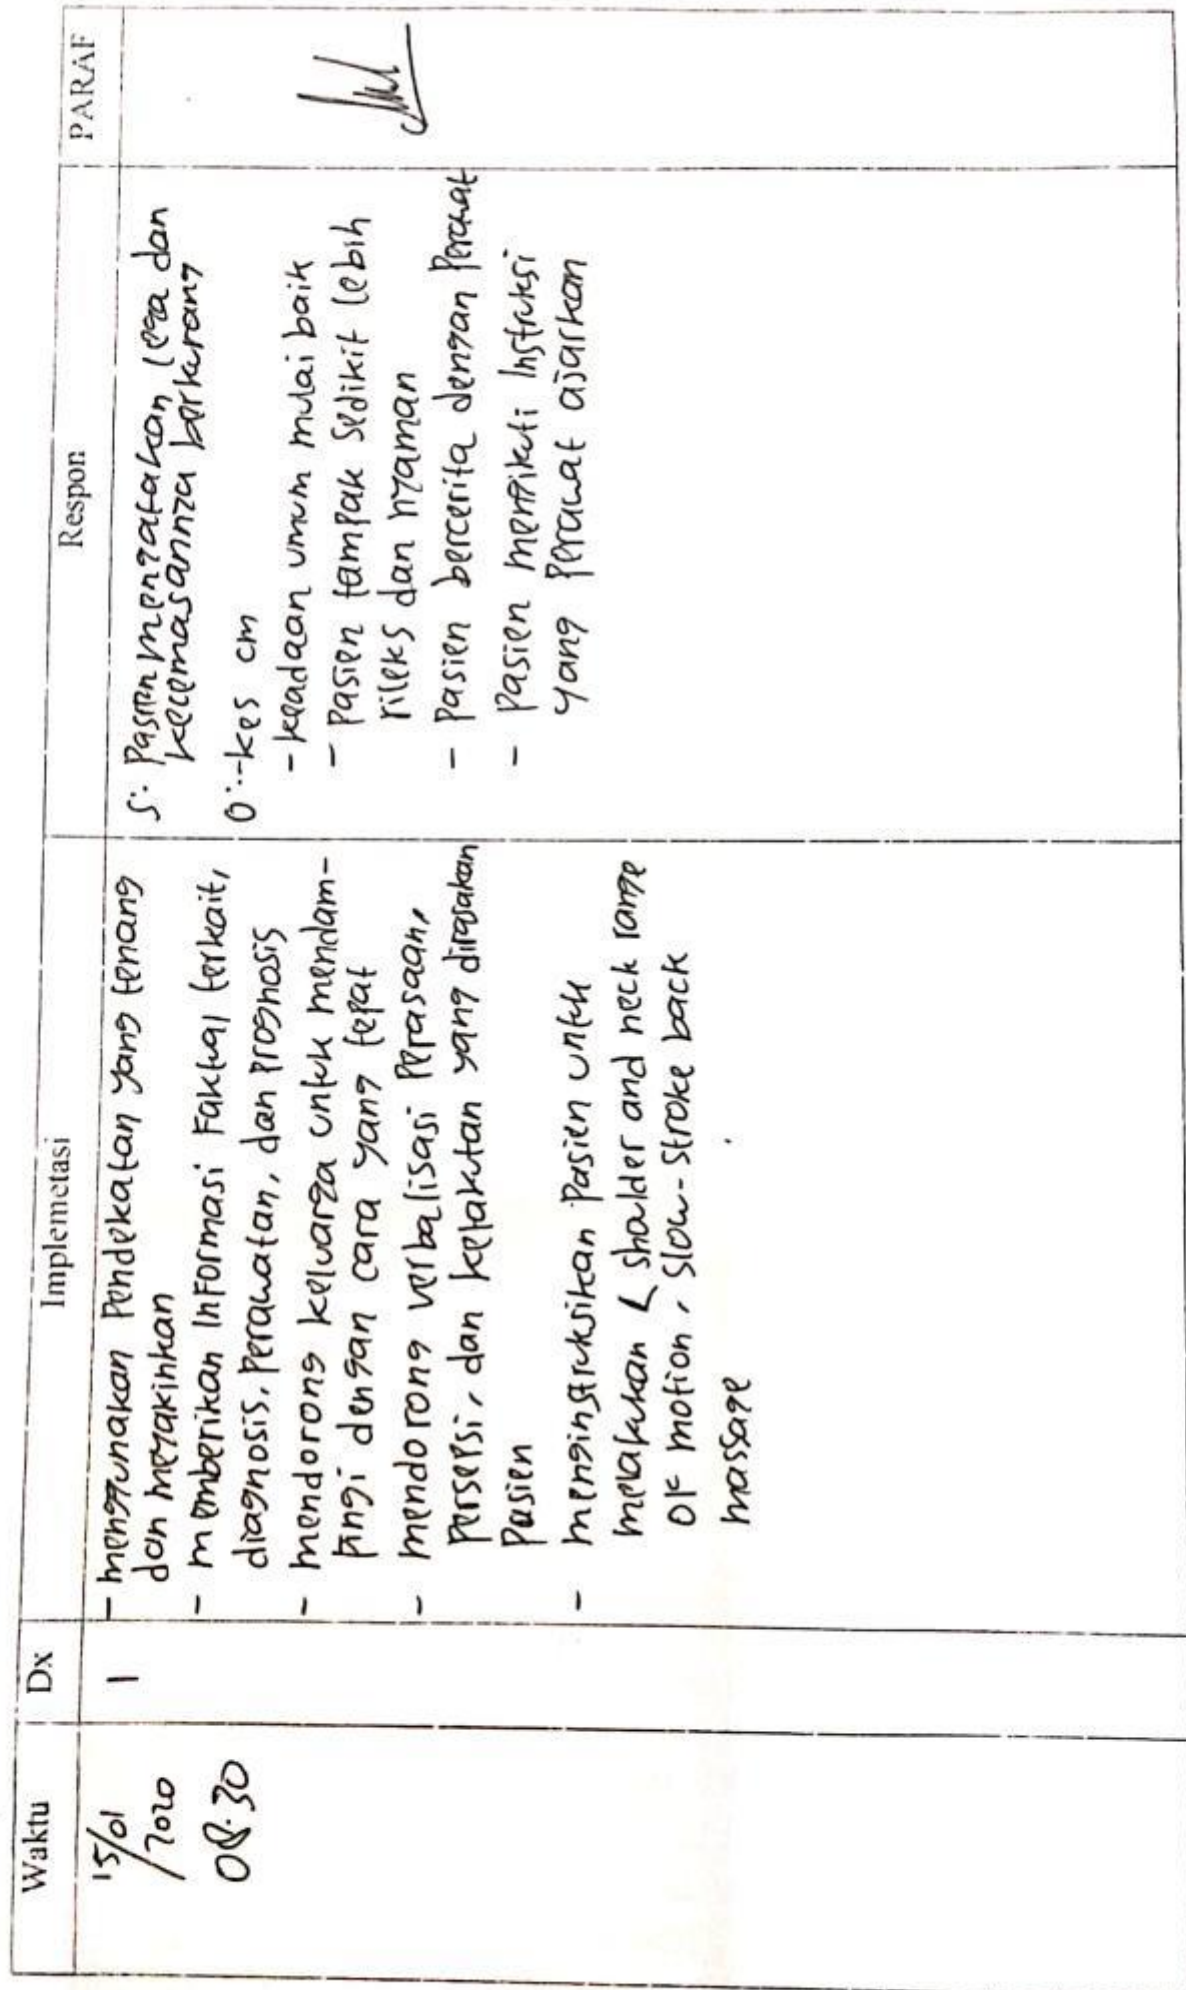 Waktu
Dx
Implemetasi
Respon
PARAF
15/01
/2020
08.30
1
- menggunakan Pendekatan yang tenang
dan meyakinkan
- memberikan informasi Faktual terkait,
diagnosis, Perawatan, dan prognosis
- mendorong keluarga untuk mendam-
pingi dengan cara yang tepat
- mendorong verbalisasi Perasaan,
Persepsi, dan ketakutan yang dirasakan
Pasien
- menginstruksikan Pasien untuk
melakukan shoulder and neck range
OF motion, Slow-stroke back
massage
S: Pasien mengatakan lega dan
kecemasannya berkurang
O: - kes cm
- keadaan umum mulai baik
- Pasien tampak sedikit lebih
rileks dan nyaman
- Pasien bercerita dengan Perawat
- Pasien mengikuti Instruksi
yang Perawat ajarkan